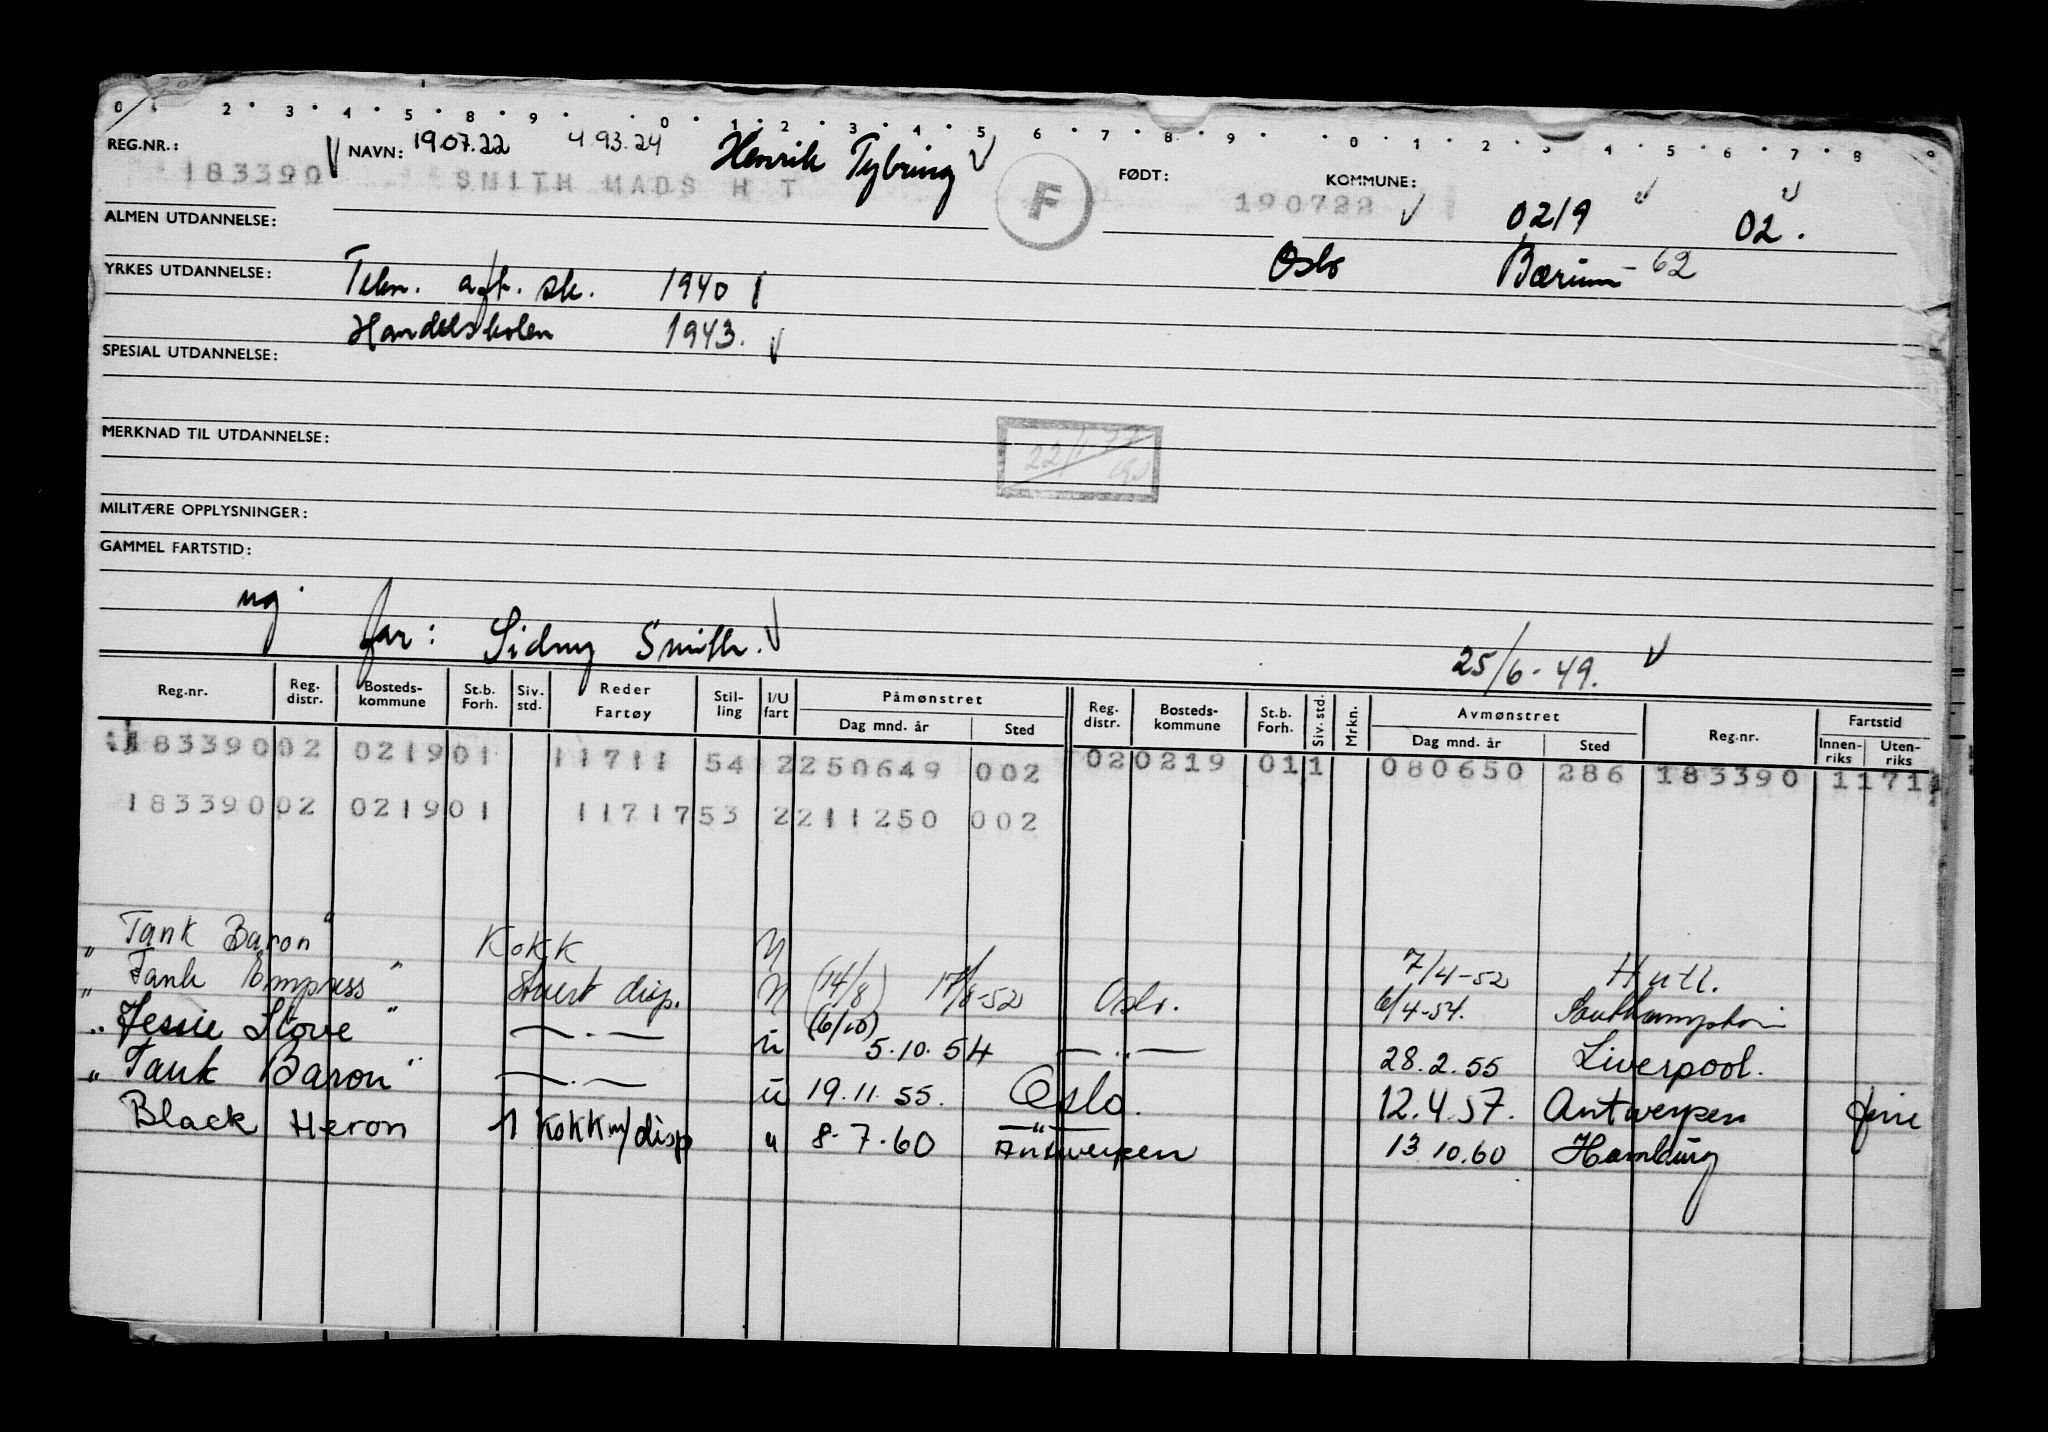 0 2 3 4 5 8 9 0 1 2 3 4 5 6 7 8 9 0 1 2 3 4 5 6 7 8 9
REG.NR.: NAVN: 19.07.22 4.93.24 Henrik Tybring
183390 SMITH MADS H T F FØDT: 190722 KOMMUNE: 0219 02.
ALMEN UTDANNELSE:
Oslo Bærum - 62
YRKES UTDANNELSE: Tekn. aft. sk. 1940
Handelskolen 1943.
SPESIAL UTDANNELSE:
MERKNAD TIL UTDANNELSE:
MILITÆRE OPPLYSNINGER:
GAMMEL FARTSTID:
ug far: Sidney Smith. 25/6-49.
Reg.nr. Reg. distr. Bosteds-kommune St.b. Forh. Siv. std. Reder Fartøy Stil-ling I/U fart Påmønstret Dag mnd. år Sted Reg. distr. Bosteds-kommune St.b. Forh. Siv. std. Mrkn. Avmønstret Dag mnd. år Sted Reg.nr. Fartstid Innen-riks Uten-riks
183390 02 0219 01 11711 54 2 250649 002 02 0219 01 1 080650 286 183390 1171
183390 02 0219 01 11717 53 2 211250 002
"Tank Baron" Kokk U 7/4-52 Hull.
"Tank Empress" Stuert disp. U (14/8) 17/8-52 Oslo. 6/4-54. Southampton
"Jessie Stove" — . — u (6/10) 5.10.54 — " — 28.2.55 Liverpool.
"Tank Baron" — . — u 19.11.55. Oslo. 12.4.57. Antwerpen
Black Heron 1 Kokk m/disp u 8.7.60 — " — Antwerpen 13.10.60 Hamburg